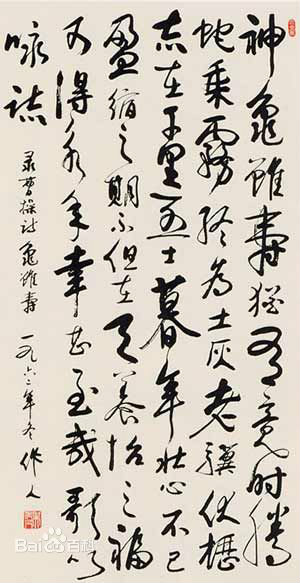 神龜雖壽猶有竟時騰
蛇乘霧終為土灰老驥伏櫪
志在千里烈士暮年壯心不已
盈縮之期不但在天養怡之福
可得永年幸甚至哉歌以
咏志
录曹操詩龜雖壽 一九六二年冬 作人
Bai百科